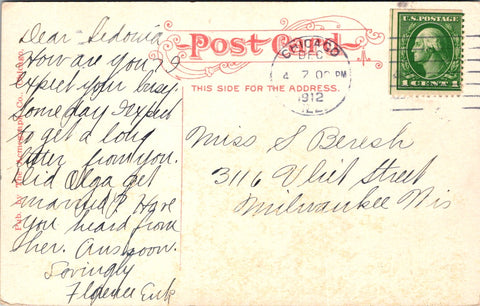 Dear Sedonia
How are you, I
expect your busy.
Some day I expect
to get a long
letter from you.
Did Olga get
married? Have
you heard from
her. Ans soon.
Lovingly
Florence
Post Card
THIS SIDE FOR THE ADDRESS.
CHICAGO
DEC
4 7 00 PM
1912
ILL.
U.S. POSTAGE
1 CENT 1
Miss S Beresh
3116 Vliet Street
Milwaukee Wis
Pub. by The
Co.